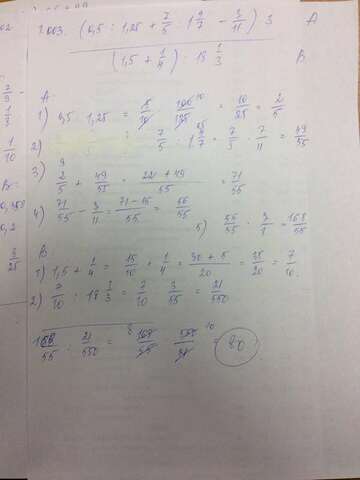 1.003. (0,5 : 1,25 + 7/5 : 1 4/7 - 3/11) 3 A
(1,5 + 1/4) : 18 1/3 B
A:
1) 0,5 : 1,25 = 100/125 = 10/25 = 2/5
2) 7/5 : 1 4/7 = 7/5 · 7/11 = 49/55
3) 2/5 + 49/55 = 22+49/55 = 71/55
4) 71/55 - 3/11 = 71-15/55 = 56/55
5) 56/55 · 3/1 = 168/55
B
1) 1,5 + 1/4 = 15/10 + 1/4 = 30+5/20 = 35/20 = 7/10
2) 7/10 : 18 1/3 = 7/10 · 3/55 = 21/550
168/55 : 21/550 = 168/55 · 550/21 = 80